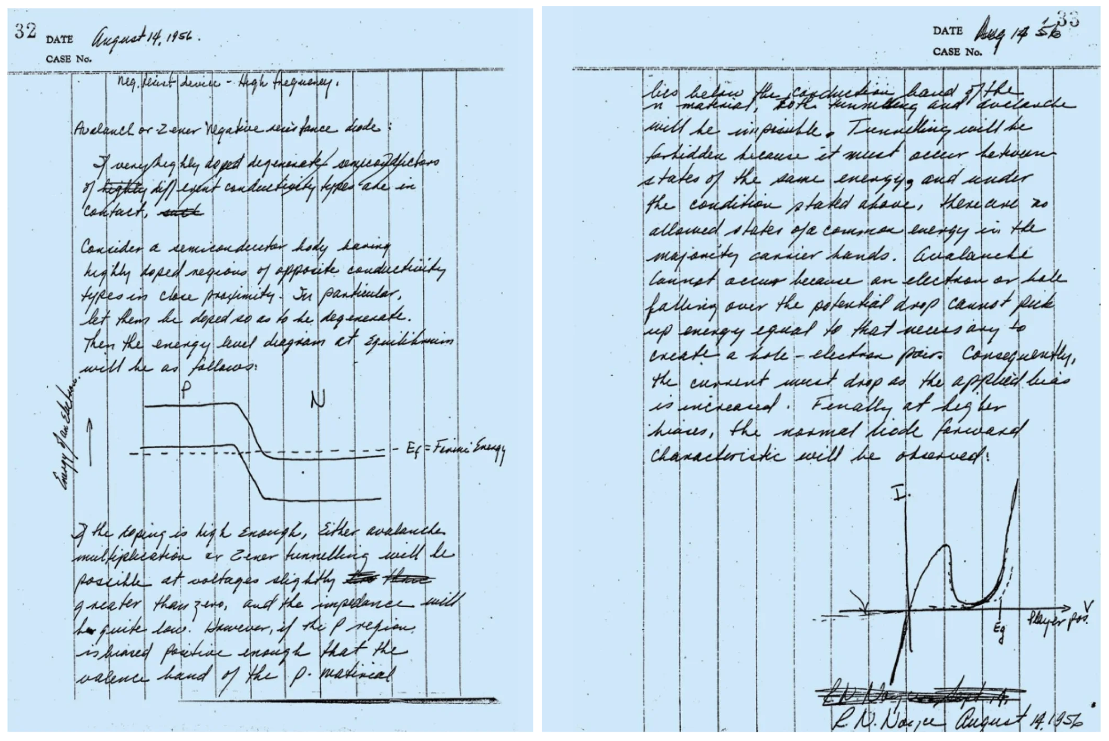 32
DATE August 14, 1956.
CASE No.
Neg. Resist device - High frequency.
Avalanch or Zener Negative resistance diode:
If very highly doped degenerate semiconductors
of highly different conductivity types are in
contact, such
Consider a semiconductor body having
highly doped regions of opposite conductivity
types in close proximity. In particular,
let them be doped so as to be degenerate.
Then the energy level diagram at Equilibrium
will be as follows:
P
N
Energy of an Electron
Ef = Fermi Energy
If the doping is high Enough, Either avalanche
multiplication or Zener tunnelling will be
possible at voltages slightly less than
greater than zero, and the impedance will
be quite low. However, if the P region
is biased positive enough that the
valence band of the P. material
33
DATE Aug 14 '56
CASE No.
lies below the conduction band of the
n material, both tunnelling and avalanche
will be impossible. Tunnelling will be
forbidden because it must occur between
states of the same energy, and under
the condition stated above, there are no
allowed states of a common energy in the
majority carrier bands. Avalanche
cannot occur because an electron or hole
falling over the potential drop cannot pick
up energy equal to that necessary to
create a hole-electron pair. Consequently,
the current must drop as the applied bias
is increased. Finally at higher
biases, the normal diode forward
characteristic will be observed:
I
V
Eg
P layer pos.
R. N. Noyce August 14, 1956